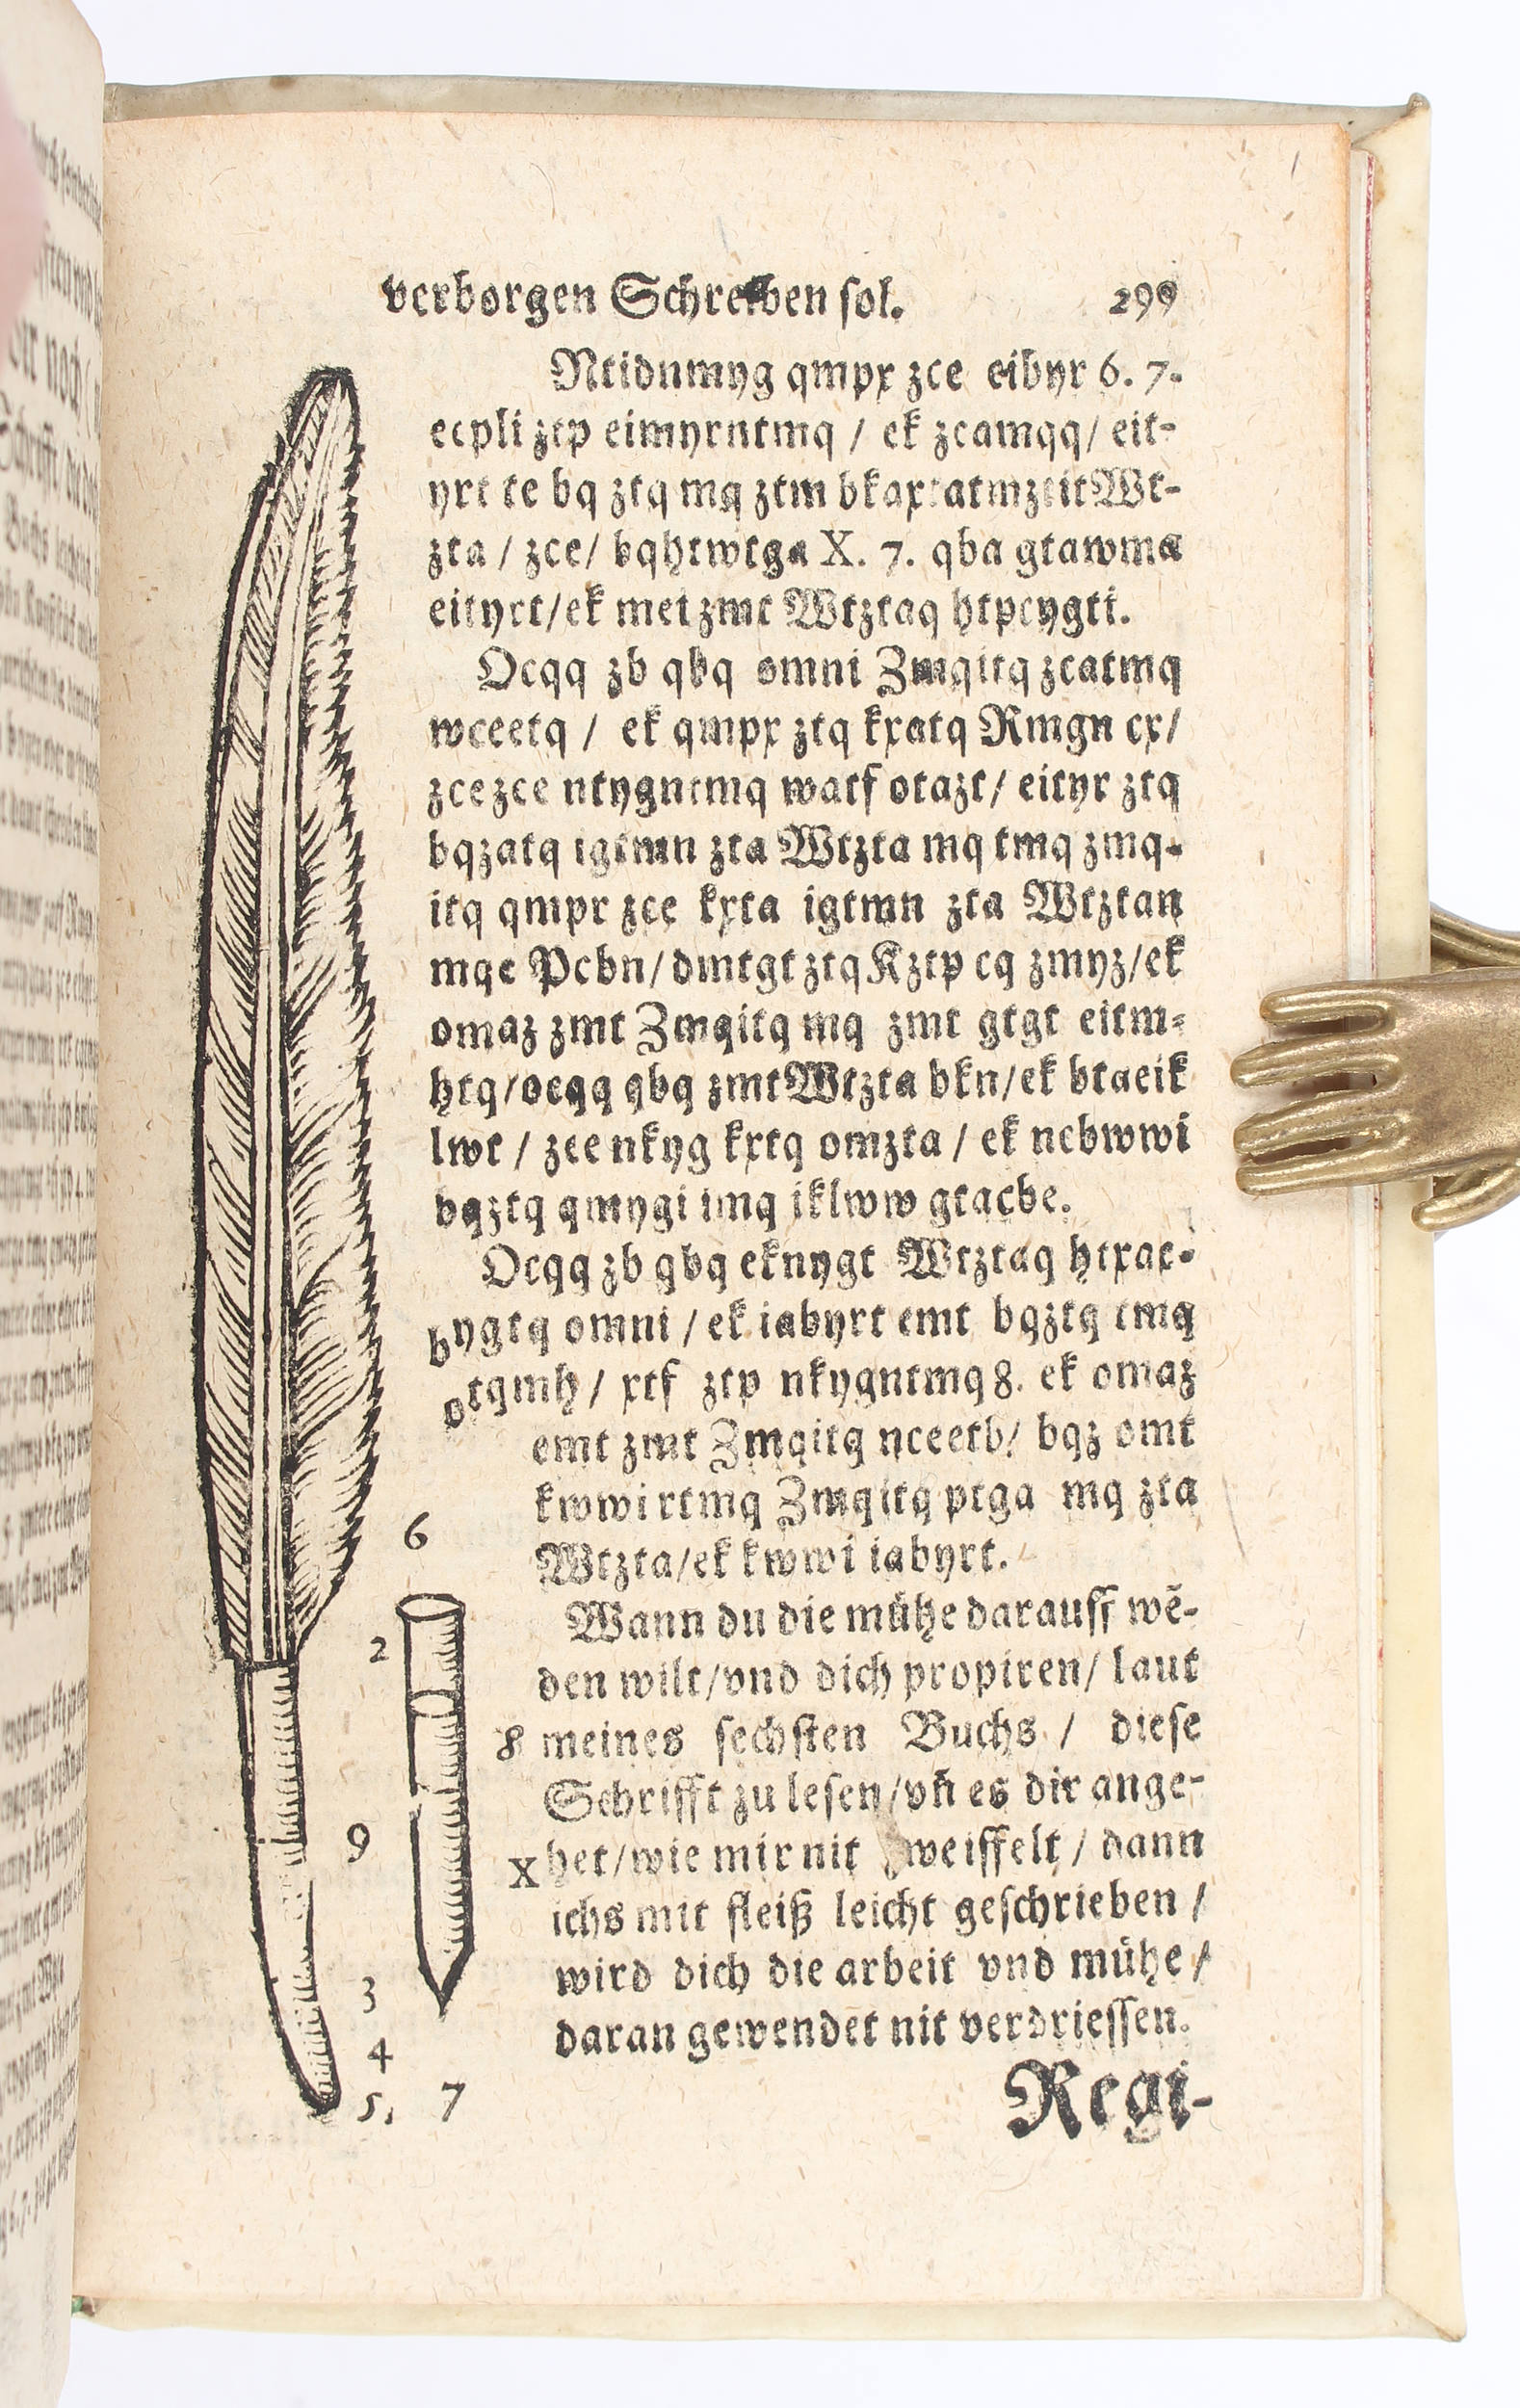 verborgen Schreiben sol. 299
Ntidnmyg qmpx zce eibyr 6. 7.
ecpli ztp eimyrntmq / ek zcamqq / eit-
yrt te bq ztq mq ztm Wt-
zta / zce / bqhtwtga X. 7. qba gtawma
eityrt / ek mei zmt Wtztaq htpcygti.
Ocqq zb qbq omni Zmqitq zcatmq
wceetq / ek qmpx ztq kxatq Rmgn cx /
zcezce ntygntmq watf otazt / eityr ztq
bqzatq igtmn zta Wtzta mq tmq zmq-
itq qmpr zce kxta igtmn zta Wtztan
mqe Pcbn / dmtgt ztq Kztp cq zmyz / ek
omaz zmt Zmqitq mq zmt gtgt eitm-
htq / ocqq qbq zmt Wtzta bkn / ek btaeik
lwt / zce nkyg kxtq omzta / ek ncbwwi
bqztq qmygi imq iklww gtacbe.
Ocqq zb qbq eknygt Wtztaq htxac-
bygtq omni / ek iabyrt emt bqztq tmq
otqmh / xtf ztp nkygntmq 8. ek omaz
emt zmt Zmqitq nceetb / bqz omt
kwwirtmq Zmqitq ptga mq zta
6
Wtzta / ek kwwi iabyrt.
Wann du die mühe darauff wẽ-
2
den wilt / vnd dich propiren / laut
8 meines sechsten Buchs / diese
Schrifft zu lesen / vñ es dir ange-
9
X het / wie mir nit zweiffelt / dann
ichs mit fleiß leicht geschrieben /
3
wird dich die arbeit vnd mühe /
daran gewendet nit verdriessen.
4
5. 7
Regi-